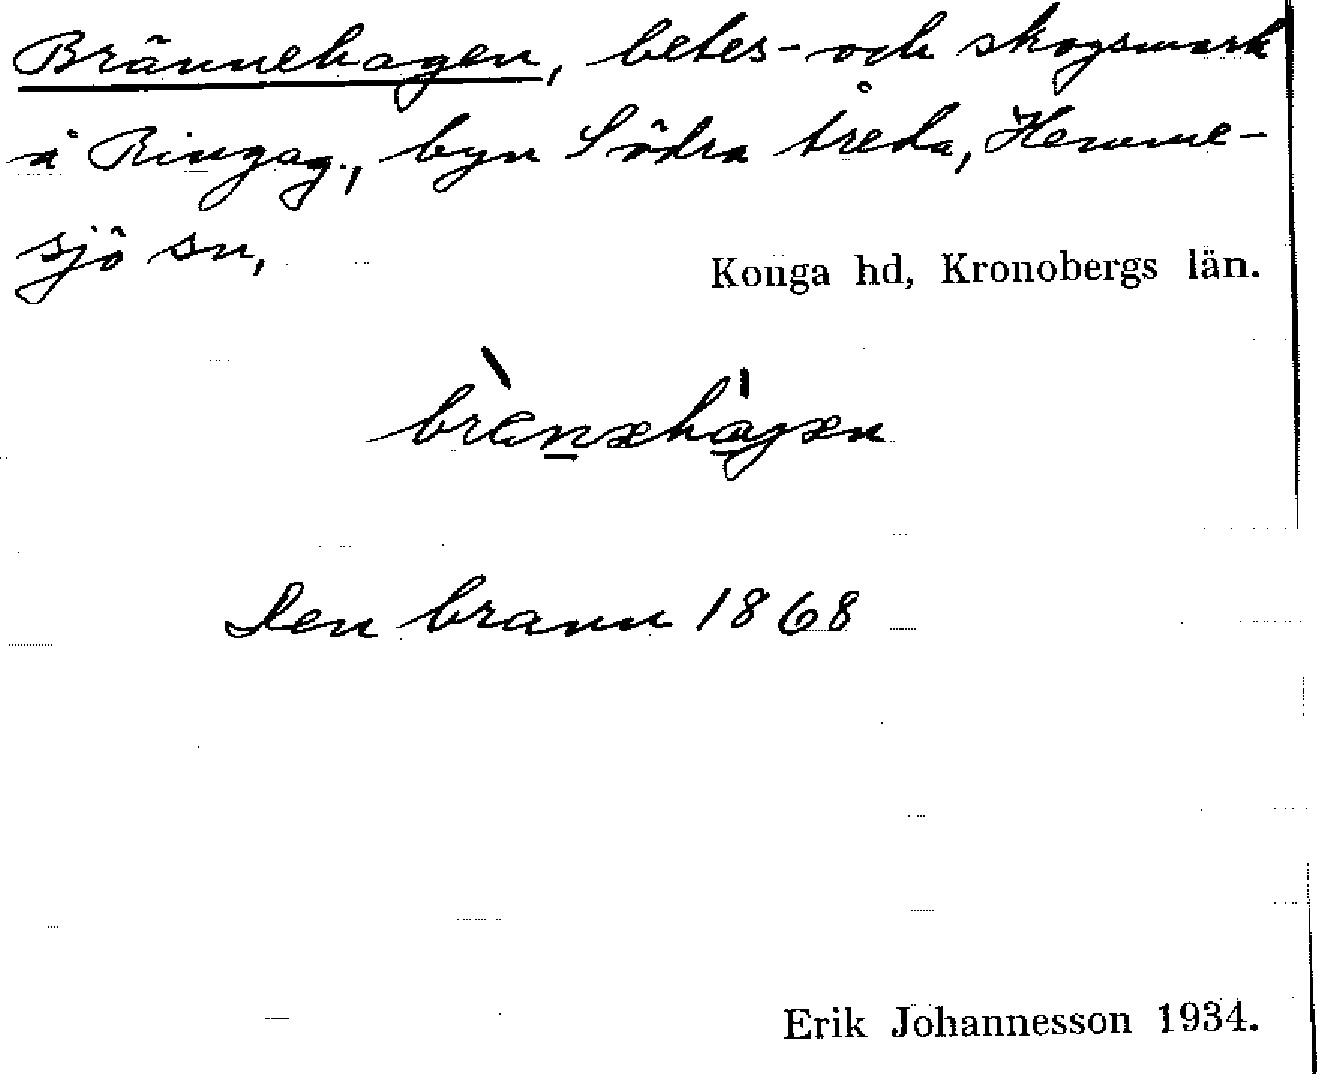 Brännehagen, betes- och skogsmark
å Ringag., byn Södra Åreda, Hemme-
sjö sn,
Konga hd, Kronobergs län.
Den brann 1868
Erik Johannesson 1934.